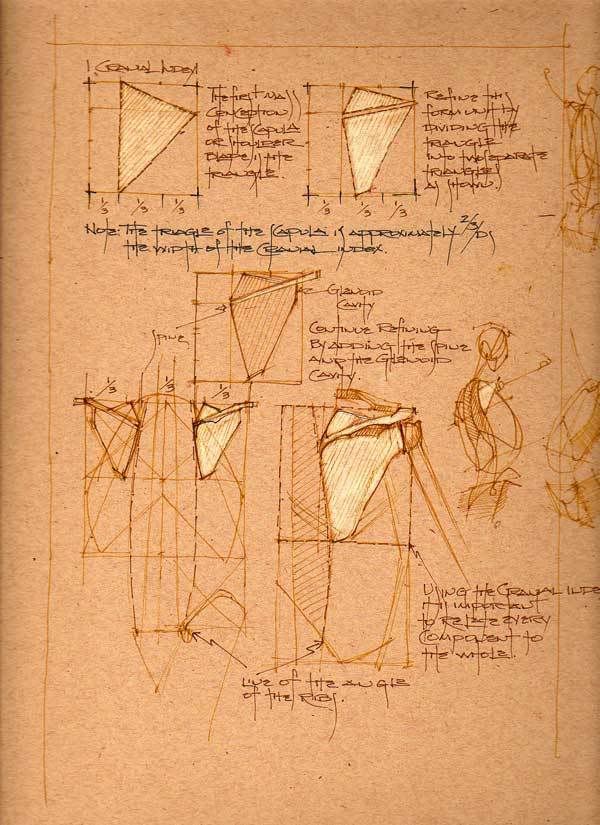 1 Cranial Index
The first mass
conception
of the scapula
or shoulder
blade is the
triangle.
Refine this
form unit by
dividing the
triangle
into two separate
triangles
as shown.
1/3 1/3 1/3
1/3 1/3 1/3
Note: The triagle of the scapula is approximately 2/3rds
the width of the Cranial Index.
Glenoid
Cavity
Spine
Continue refining
by adding the spine
and the glenoid
cavity.
1/3 1/3 1/3
Using the Cranial Inde
it is important
to relate every
component to
the whole.
Line of the angle
of the ribs.